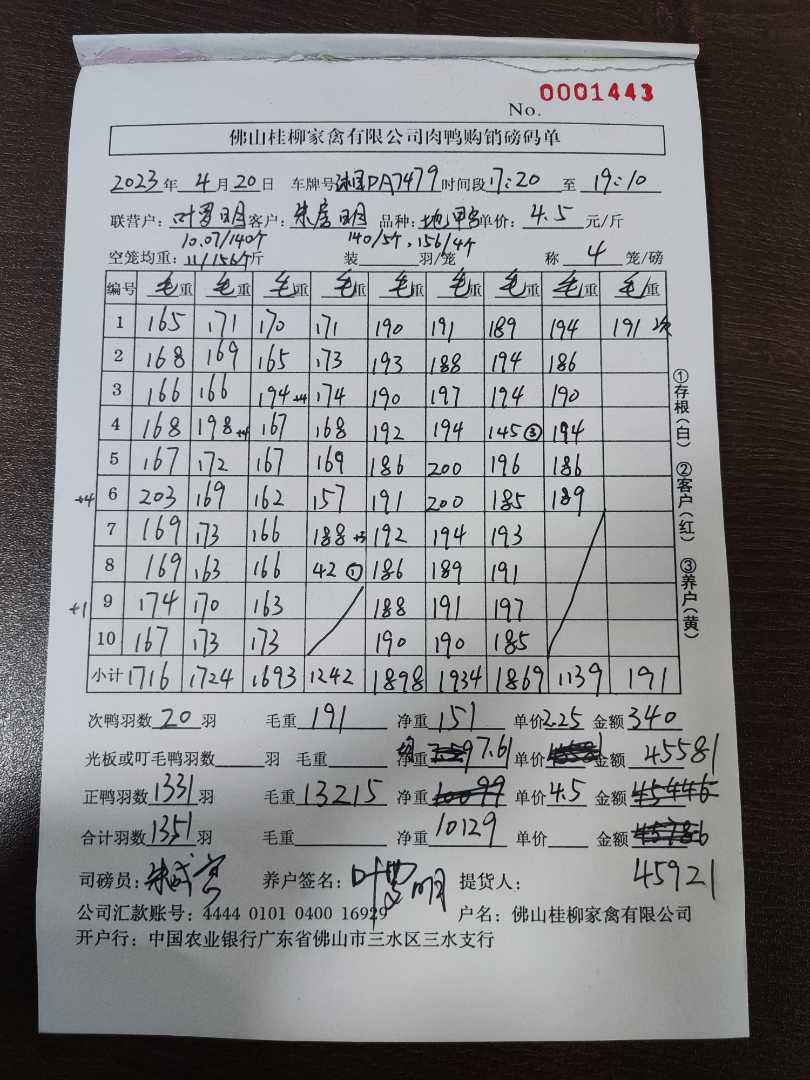 No. 0001443
佛山桂柳家禽有限公司肉鸭购销磅码单
2023年 4月20日 车牌号 DA7479 时间段 17:20 至 19:10
联营户: 叶罗明 客户: 朱房明 品种: 地鸭 单价: 4.5 元/斤
10.07/140个 140/5个, 156/4个
空笼均重: 11/156个斤 装 羽/笼 称 4 笼/磅
编号 毛重 毛重 毛重 毛重 毛重 毛重 毛重 毛重 毛重
1 165 171 170 171 190 191 189 194 191 次
2 168 169 165 173 193 188 194 186
3 166 166 194 +4 174 190 197 194 190
4 168 198 +4 167 168 192 194 145 ③ 194
5 167 172 167 169 186 200 196 186
+4 6 203 169 162 157 191 200 185 189
7 169 173 166 188 +3 192 194 193
8 169 163 166 42 ① 186 189 191
+1 9 174 170 163 188 191 197
10 167 173 173 190 190 185
小计 1716 1724 1693 1242 1898 1934 1869 1139 191
次鸭羽数 20 羽 毛重 191 净重 151 单价 2.25 金额 340
光板或叮毛鸭羽数 羽 毛重 净重 97.61 单价 金额 45581
正鸭羽数 1331 羽 毛重 13215 净重 10099 单价 4.5 金额 45446
合计羽数 1351 羽 毛重 净重 10129 单价 金额 45786
司磅员: 养户签名: 叶罗明 提货人: 45921
公司汇款账号: 4444 0101 0400 16929 户名: 佛山桂柳家禽有限公司
开户行: 中国农业银行广东省佛山市三水区三水支行
①存根(白) ②客户(红) ③养户(黄)